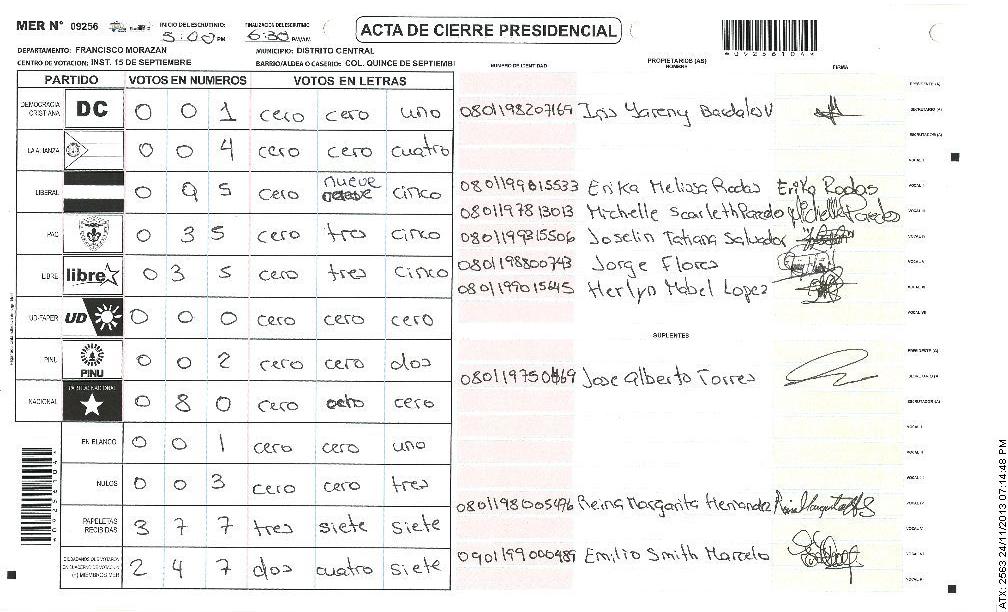 MER N° 09256 INICIO DEL ESCRUTINIO: 5:00 PM FINALIZACION DEL ESCRUTINIO 6:30 PM/AM
ACTA DE CIERRE PRESIDENCIAL
DEPARTAMENTO: FRANCISCO MORAZAN MUNICIPIO: DISTRITO CENTRAL
CENTRO DE VOTACION: INST. 15 DE SEPTIEMBRE BARRIO/ALDEA O CASERIO: COL. QUINCE DE SEPTIEMBI
NUMERO DE IDENTIDAD PROPIETARIOS (AS) NOMBRE FIRMA
PARTIDO VOTOS EN NUMEROS VOTOS EN LETRAS
DEMOCRACIA CRISTIANA DC 0 0 1 cero cero uno
LA ALIANZA 0 0 4 cero cero cuatro
LIBERAL 0 9 5 cero nueve cinco
PAC 0 3 5 cero tres cinco
LIBRE libre 0 3 5 cero tres cinco
UD-FAPER UD 0 0 0 cero cero cero
PINU PINU 0 0 2 cero cero dos
NACIONAL PARTIDO NACIONAL 0 8 0 cero ocho cero
EN BLANCO 0 0 1 cero cero uno
NULOS 0 0 3 cero cero tres
PAPELETAS RECIBIDAS 3 7 7 tres siete siete
2 4 7 dos cuatro siete
PRESIDENTE (A)
0801198207169 Iris Yareny Bardalov SECRETARIO (A)
ESCRUTADOR (A)
VOCAL I
0801199015533 Erika Melissa Rodas Erika Rodas VOCAL II
0801197813013 Michelle Scarleth Paredo Michelle Paredes VOCAL III
0801199315506 Joselin Tatiana Salvador VOCAL IV
0801198800743 Jorge Flores VOCAL V
0801199015645 Herlyn Mabel Lopez VOCAL VI
VOCAL VII
SUPLENTES
PRESIDENTE (A)
Jose Alberto Torres SECRETARIO (A)
ESCRUTADOR (A)
VOCAL I
VOCAL II
VOCAL III
08011981005496 Reina Margarita Hernandez VOCAL IV
VOCAL V
0901199000487 Emilio Smith Marcelo VOCAL VI
ATX: 2563 24/11/2013 07:14:48 PM